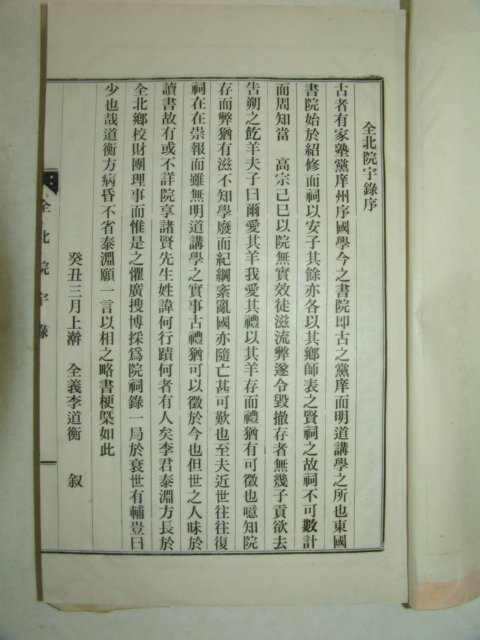 全北院宇錄序
古者有家塾黨庠州序國學今之書院卽古之黨庠而明道講學之所也東國
書院始於紹修而祠以安子其餘亦各以其鄕師表之賢祠之故祠不可數計
而周知當 高宗己巳以院無實效徒滋流弊遂令毀撤存者無幾子貢欲去
告朔之餼羊夫子曰爾愛其羊我愛其禮以其羊存而禮猶有可徵也噫知院
存而弊猶有滋不知學廢而紀綱紊亂國亦隨亡甚可歎也至夫近世往往復
祠在在崇報而雖無明道講學之實事古禮猶可以徵於今也但世之人昧於
讀書故有或不詳院享諸賢先生姓諱何行蹟何者有人矣李君泰淵方長於
全北鄕校財團理事而惟是之懼廣搜博採爲院祠錄一局於衰世有輔豈曰
少也哉道衡方病昏不省泰淵願一言以相之略書梗槩如此
癸丑三月上澣 全義李道衡 敍
全北院宇錄